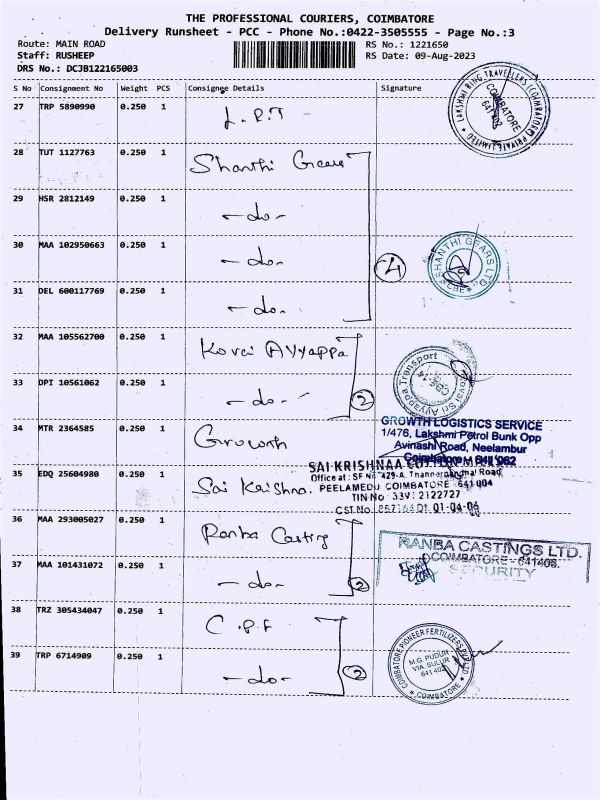 THE PROFESSIONAL COURIERS, COIMBATORE
Delivery Runsheet - PCC - Phone No.:0422-3505555 - Page No.:3
Route: MAIN ROAD RS No.: 1221650
Staff: RUSHEEP RS Date: 09-Aug-2023
DRS No.: DCJB122165003
S No Consignment No Weight PCS Consignee Details Signature
27 TRP 5890990 0.250 1 L.R.T -
LAKSHMI RING TRAVELLERS (COIMBATORE) PRIVATE LIMITED
COIMBATORE
641 402
28 TUT 1127763 0.250 1 Shanthi Gears
29 HSR 2812149 0.250 1 -do-
30 MAA 102950663 0.250 1 -do- 4
SHANTHI GEARS LTD.,
CBE
31 DEL 600117769 0.250 1 -do-
32 MAA 105562700 0.250 1 Kovai Ayyappa
Kovai Sri Ayyappa Transport
33 DPI 10561062 0.250 1 -do- 2
34 MTR 2364585 0.250 1 Growth
GROWTH LOGISTICS SERVICE
1/476, Lakshmi Petrol Bunk Opp
Avinashi Road, Neelambur
Coimbatore - 641 062
35 EDQ 25604980 0.250 1 Sai Krishna.
SAI KRISHNAA COTTON
Office at: SF No 429-A, Road
PEELAMEDU COIMBATORE 641 004
TIN No 339: 2122727
CST No. 01-04-06
36 MAA 293005027 0.250 1 Ranba Casting
RANBA CASTINGS LTD.
COIMBATORE - 641406.
SECURITY
37 MAA 101431072 0.250 1 -do- 2
38 TRZ 305434047 0.250 1 C.P.F
COIMBATORE PIONEER FERTILIZERS PVT LTD
M.G. PUDUR
VIA. SULUR
641 402
COIMBATORE
39 TRP 6714909 0.250 1 -do- 2